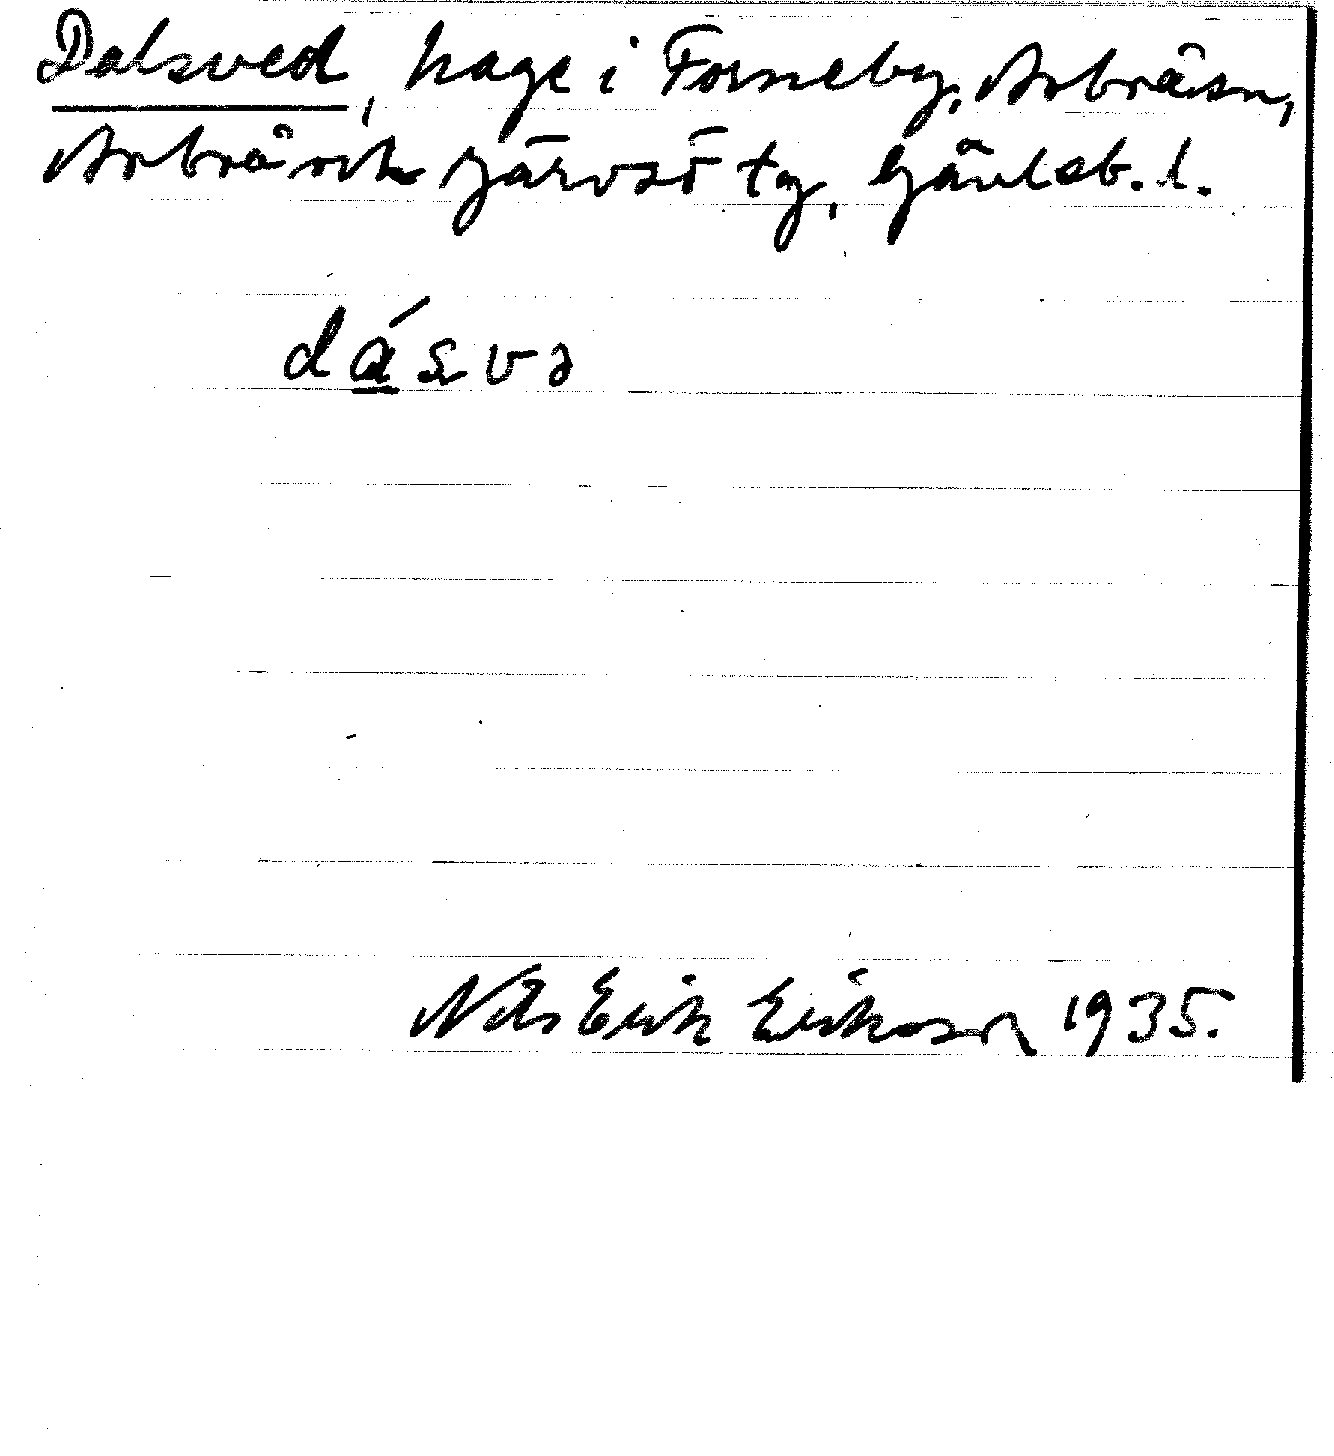 Dalsved, hage i Forneby, Arbrå sn,
Arbrå och Järvsö tg, Gävleb. l.
dásvə
Nils Erik Eriksson 1935.